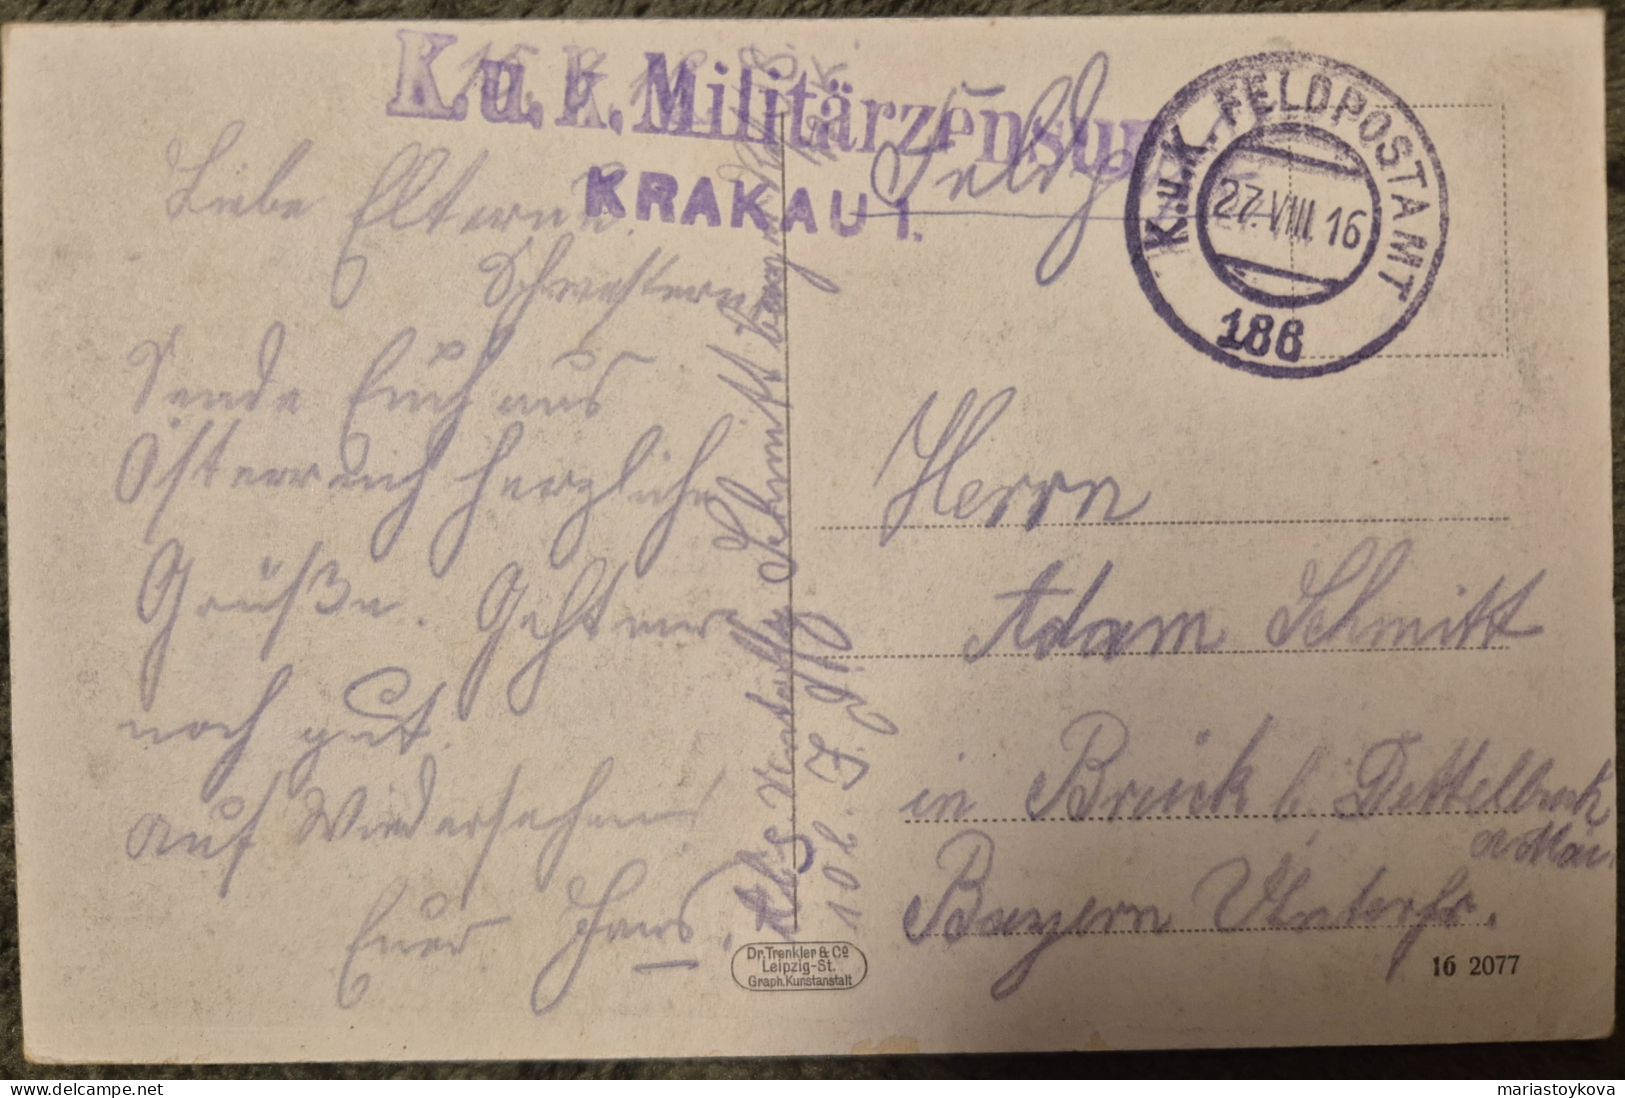 K. u. k. Militärzensur
KRAKAU I.
K. u. K. FELDPOSTAMT
27. VIII. 16
186
Liebe Eltern u.
Schwestern
Sende Euch aus
Österreich herzliche
Grüße. Geht mir
noch gut.
Auf Wiedersehen!
Euer Hans.
Schmitt
10b. J. R.
Herrn
Adam Schmitt
in Brück b. Dettelbach
a Main
Bayern Unterfr.
Dr. Trenkler & Co
Leipzig-St.
Graph. Kunstanstalt
16 2077
mariastoykova